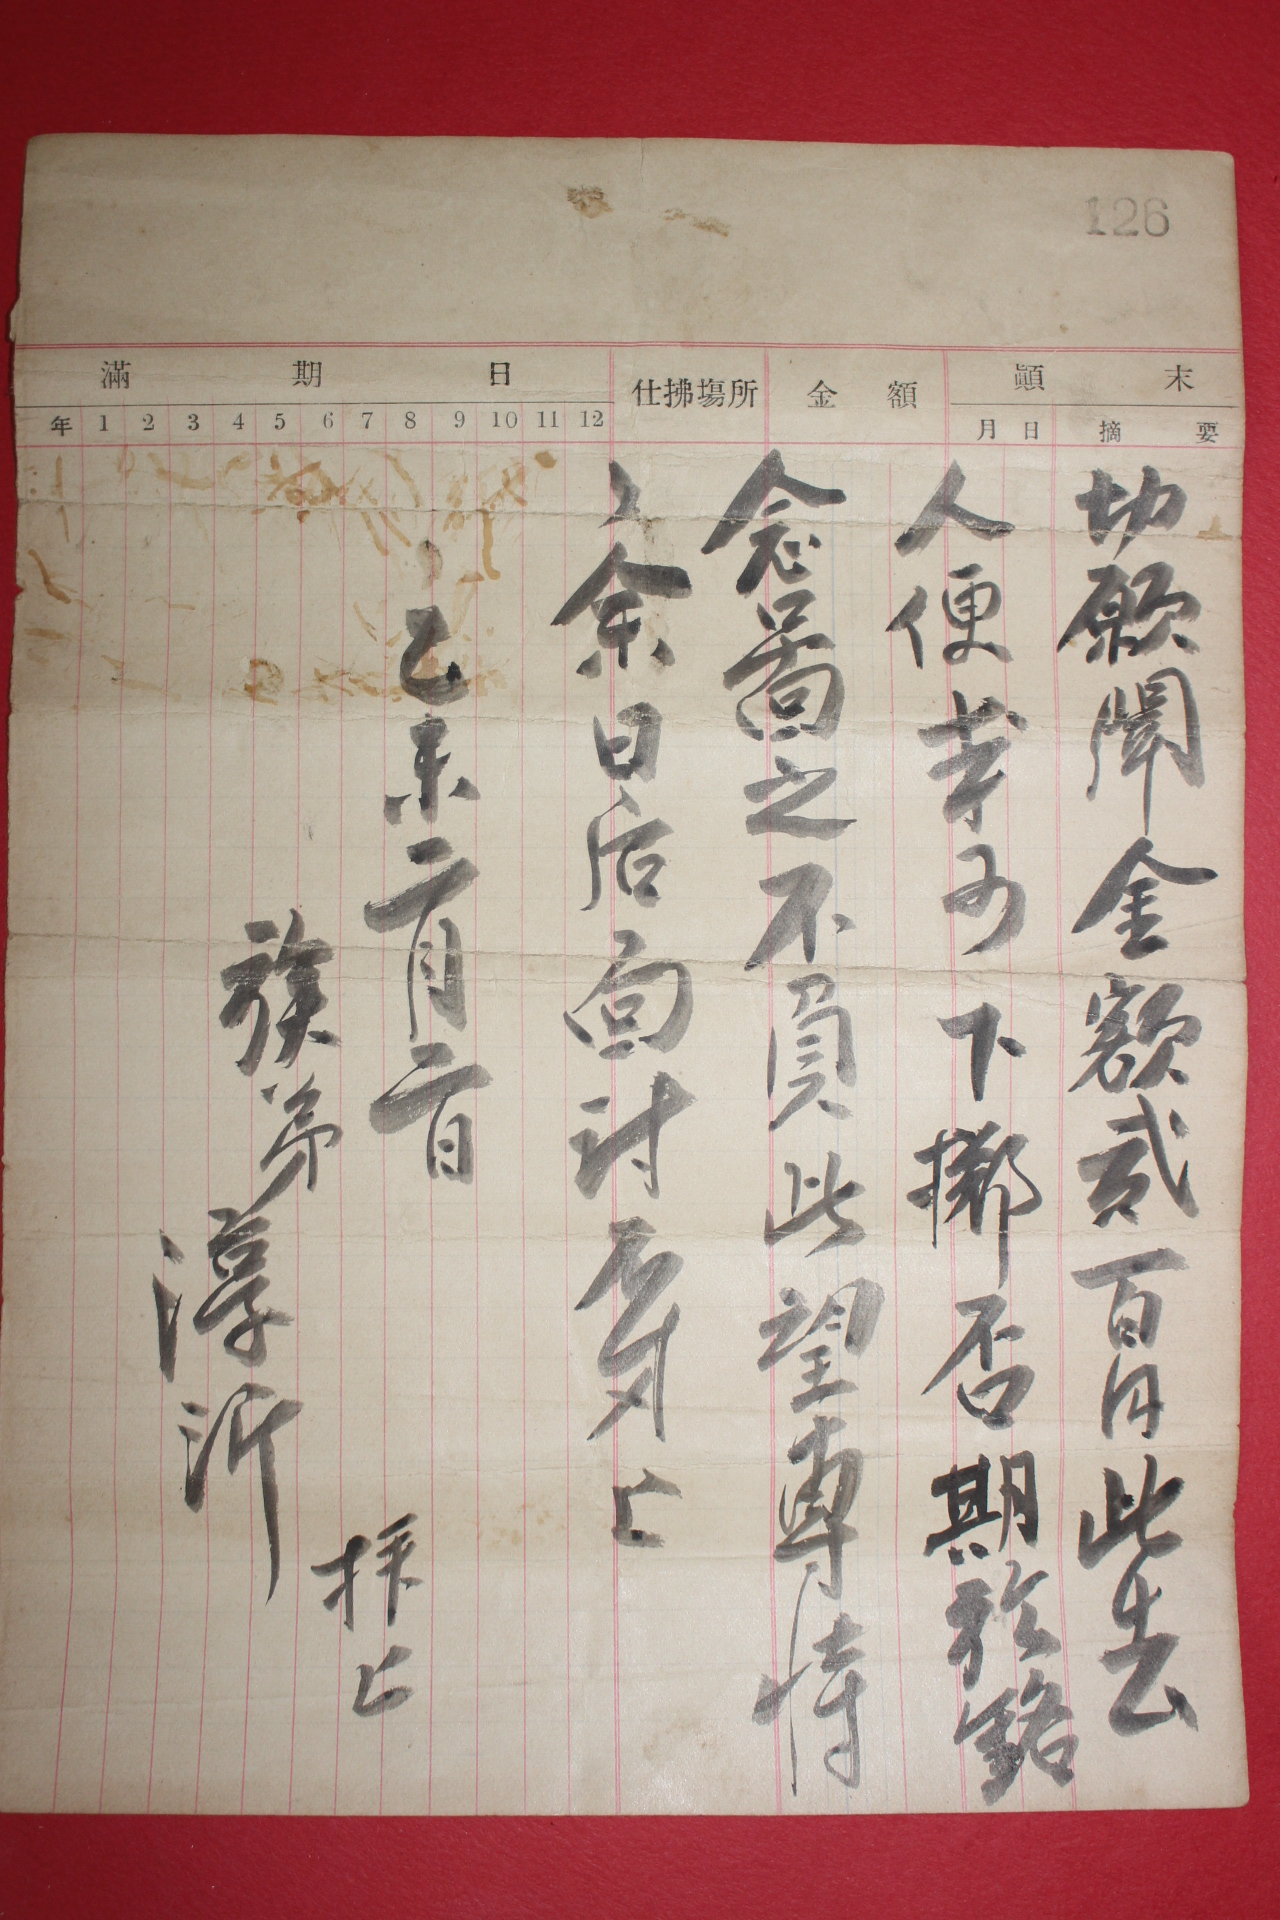 126
滿期日 仕拂塲所 金額 顚末
年 1 2 3 4 5 6 7 8 9 10 11 12 月日 摘要
切願聞金額貳百円此去
人便幸可下擲否期於銘
念啚之不負此望專恃
〃余日后面討不備上
乙未二月二日
族弟淳沂
拜上